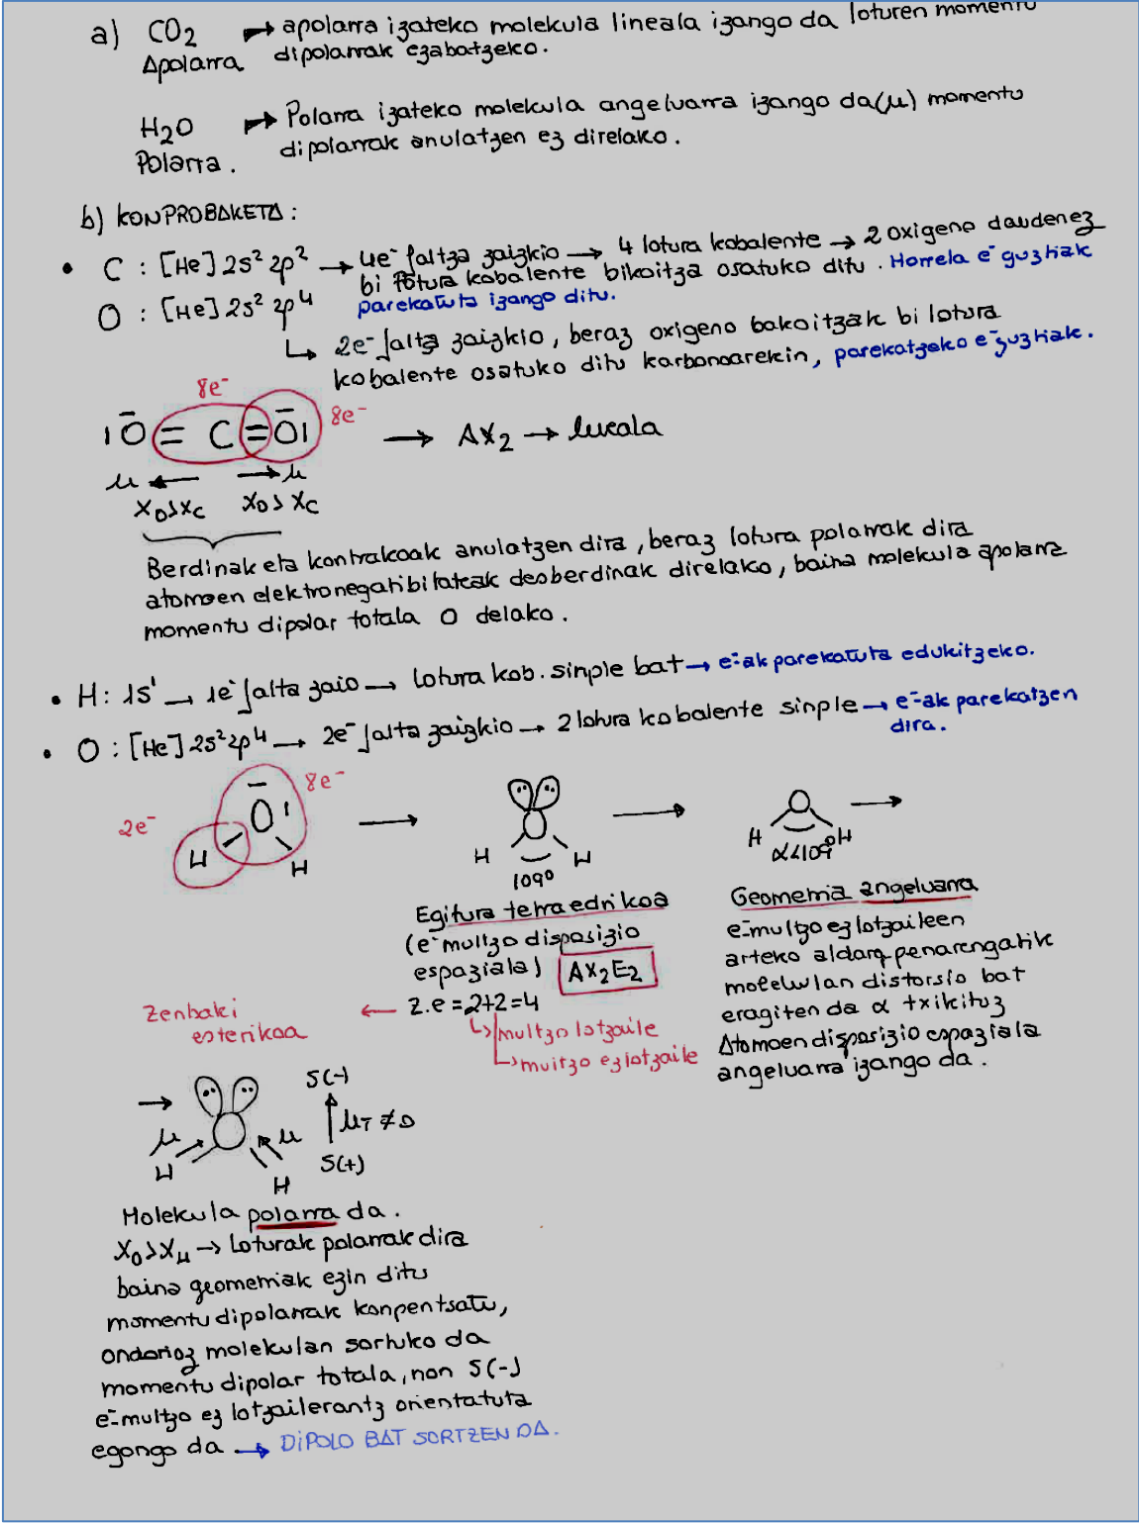 a) CO₂ → apolarra izateko molekula lineala izango da loturen momentu
Apolarra dipolarrak ezabatzeko.
H₂O → Polarra izateko molekula angeluarra izango da (μ) momentu
Polarra. dipolarrak anulatzen ez direlako.
b) KONPROBAKETA:
• C : [He] 2s² 2p² → 4e⁻ faltza zaizkio → 4 lotura kobalente → 2 oxigeno daudenez
bi lotura kobalente bikoitza osatuko ditu. Horrela e⁻ guztiak
O : [He] 2s² 2p⁴ parekatuta izango ditu.
↳ 2e⁻ falta zaizkio, beraz oxigeno bakoitzak bi lotura
kobalente osatuko ditu karbonoarekin, parekatzeko e⁻ guztiak.
8e⁻
|O̅ = C = O̅| 8e⁻ → AX₂ → lineala
μ ← → μ
X₀>X_C X₀>X_C
Berdinak eta kontrakoak anulatzen dira, beraz lotura polarrak dira
atomoen elektronegatibitateak desberdinak direlako, baina molekula apolarra
momentu dipolar totala 0 delako.
• H: 1s¹ → 1e⁻ falta zaio → lotura kob. sinple bat → e⁻ak parekatuta edukitzeko.
• O : [He] 2s² 2p⁴ → 2e⁻ falta zaizkio → 2 lotura kobalente sinple → e⁻ak parekatzen
dira.
2e⁻ 8e⁻
H O̅| H → O H H 109° → O H H α<109° →
Egitura tetraedrikoa
(e⁻ multzo disposizio
espaziala) AX₂E₂
Zenbaki esterikoa ← Z.e = 2+2 = 4
↳ multzo lotzaile
↳ multzo ez lotzaile
Geometria angeluarra
e⁻ multzo ez lotzaileen
arteko aldarapenarengatik
molekulan distorsio bat
eragiten da α txikituz
Atomoen disposizio espaziala
angeluarra izango da.
→ μ H μ H
δ(-)
μ_T ≠ 0
δ(+)
Molekula polarra da.
X₀>X_H → Loturak polarrak dira
baina geometriak ezin ditu
momentu dipolarrak konpentsatu,
ondorioz molekulan sortuko da
momentu dipolar totala, non δ(-)
e⁻ multzo ez lotzailerantz orientatuta
egongo da → DIPOLO BAT SORTZEN DA.